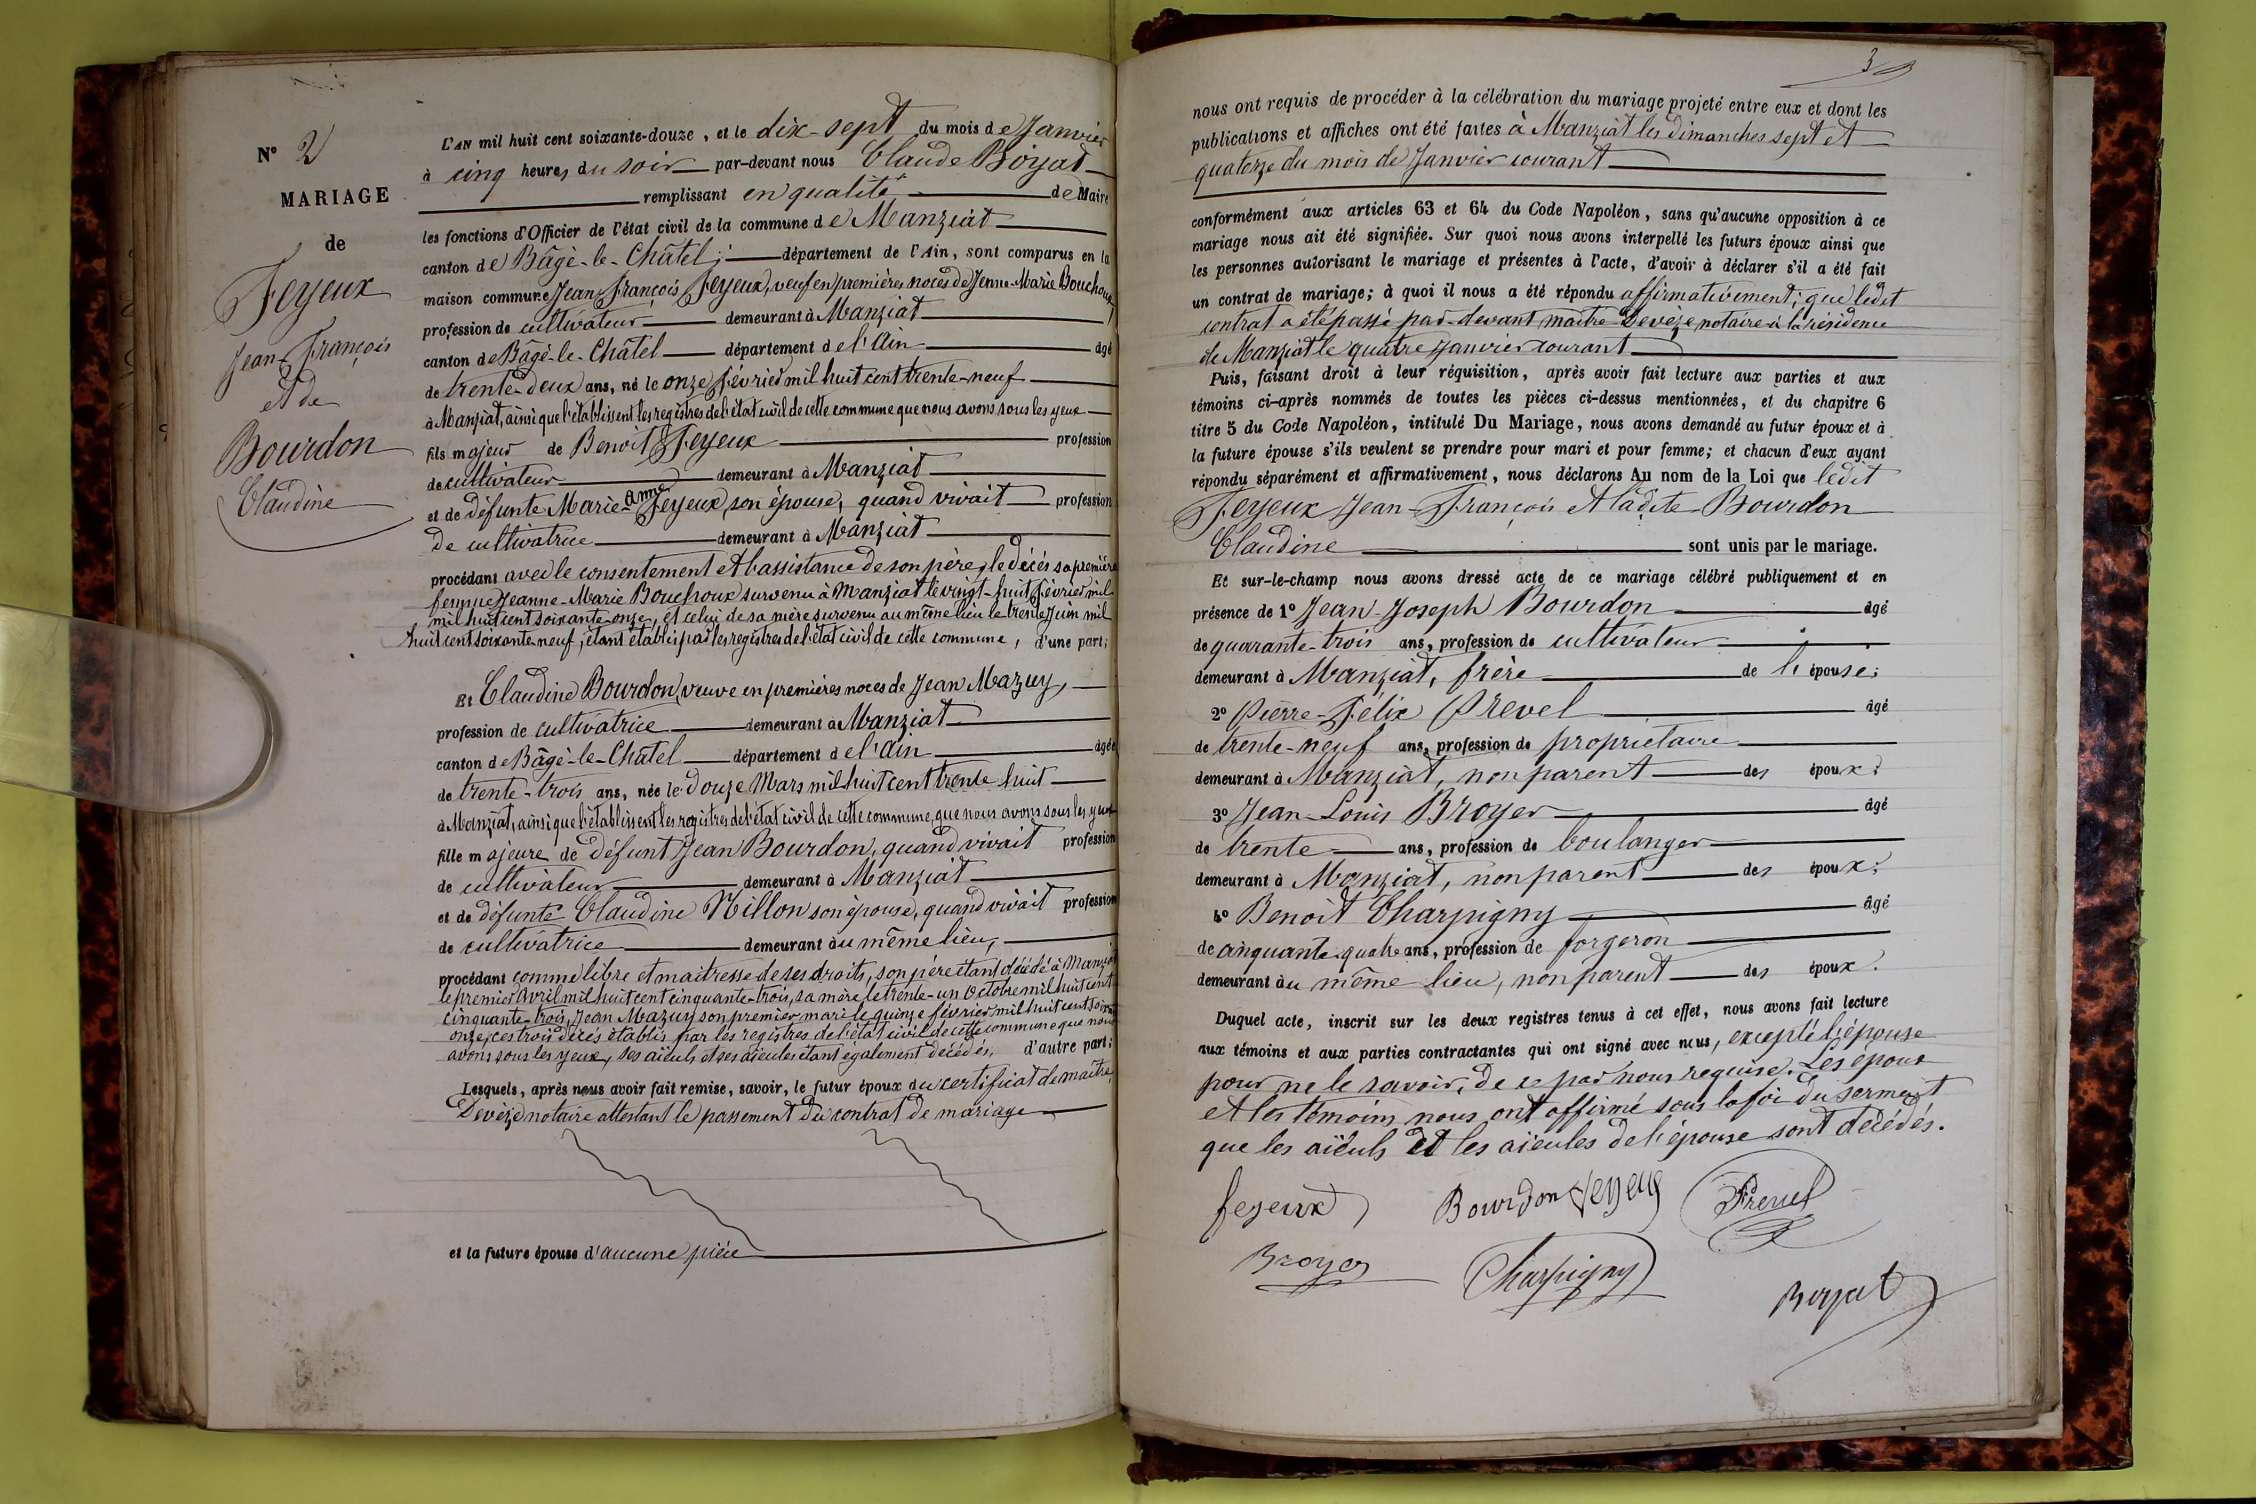 N° 2
MARIAGE
de
Feyeux
Jean-François
et de
Bourdon
Claudine
L'AN mil huit cent soixante-douze, et le dix-sept du mois de Janvier
à cinq heures du soir par-devant nous Claude Boyat
remplissant en qualité de Maire
les fonctions d'Officier de l'état civil de la commune de Manziat
canton de Bâgé-le-Châtel; département de l'Ain, sont comparus en la
maison commune Jean-François Feyeux, veuf en premières noces de Jenne-Marie Bouchoux
profession de cultivateur demeurant à Manziat
canton de Bâgé-le-Châtel département de l'Ain âgé
de trente-deux ans, né le onze février mil huit cent trente-neuf
à Manziat, ainsi que l'établissent les registres de l'état civil de cette commune que nous avons sous les yeux
fils majeur de Benoit Feyeux profession
de cultivateur demeurant à Manziat
et de défunte Marie-Anne Feyeux, son épouse, quand vivait profession
de cultivatrice demeurant à Manziat
procédant avec le consentement et l'assistance de son père, le décès sa première
femme Jeanne-Marie Bouchoux survenu à Manziat le vingt-huit février mil
mil huit cent soixante-onze, et celui de sa mère survenu au même lieu le trente Juin mil
huit cent soixante neuf, étant établis par les registres de l'état civil de cette commune, d'une part;
Et Claudine Bourdon, veuve en premières noces de Jean Mazuy,
profession de cultivatrice demeurant à Manziat
canton de Bâgé-le-Châtel département de l'Ain âgée
de trente-trois ans, née le douze Mars mil huit cent trente huit
à Manziat, ainsi que l'établissent les registres de l'état civil de cette commune, que nous avons sous les yeux
fille majeure de défunt Jean Bourdon, quand vivait profession
de cultivateur demeurant à Manziat
et de défunte Claudine Nillon son épouse, quand vivait profession
de cultivatrice demeurant au même lieu,
procédant comme libre et maîtresse de ses droits, son père étant décédé à Manziat
le premier Avril mil huit cent cinquante-trois, sa mère, le trente-un Octobre mil huit cent
cinquante-trois, Jean Mazuy son premier mari le quinze février mil huit cent soixante
onze, ces trois décès établis par les registres de l'état civil de cette commune que nous
avons sous les yeux, ses aïeuls et ses aïeules étant également décédés, d'autre part;
Lesquels, après nous avoir fait remise, savoir, le futur époux du certificat de maître
Devèze notaire attestant le passement du contrat de mariage
et la future épouse d'aucune pièce
3
nous ont requis de procéder à la célébration du mariage projeté entre eux et dont les
publications et affiches ont été faites à Manziat les dimanches sept et
quatorze du mois de Janvier courant
conformément aux articles 63 et 64 du Code Napoléon, sans qu'aucune opposition à ce
mariage nous ait été signifiée. Sur quoi nous avons interpellé les futurs époux ainsi que
les personnes autorisant le mariage et présentes à l'acte, d'avoir à déclarer s'il a été fait
un contrat de mariage; à quoi il nous a été répondu affirmativement; que ledit
contrat a été passé par-devant maître Devèze notaire à la résidence
de Manziat le quatre Janvier courant
Puis, faisant droit à leur réquisition, après avoir fait lecture aux parties et aux
témoins ci-après nommés de toutes les pièces ci-dessus mentionnées, et du chapitre 6
titre 5 du Code Napoléon, intitulé Du Mariage, nous avons demandé au futur époux et à
la future épouse s'ils veulent se prendre pour mari et pour femme; et chacun d'eux ayant
répondu séparément et affirmativement, nous déclarons Au nom de la Loi que ledit
Feyeux Jean-François et ladite Bourdon
Claudine sont unis par le mariage.
Et sur-le-champ nous avons dressé acte de ce mariage célébré publiquement et en
présence de 1° Jean-Joseph Bourdon âgé
de quarante-trois ans, profession de cultivateur
demeurant à Manziat, frère de l'épouse;
2° Pierre-Félix Prevel âgé
de trente-neuf ans, profession de propriétaire
demeurant à Manziat, non parent des époux;
3° Jean-Louis Broyer âgé
de trente ans, profession de boulanger
demeurant à Manziat, non parent des époux;
4° Benoit Charpigny âgé
de cinquante-quatre ans, profession de forgeron
demeurant au même lieu, non parent des époux.
Duquel acte, inscrit sur les deux registres tenus à cet effet, nous avons fait lecture
aux témoins et aux parties contractantes qui ont signé avec nous, excepté l'épouse
pour ne le savoir, de ce par nous requise. Les époux
et les témoins nous ont affirmé sous la foi du serment
que les aïeuls et les aïeules de l'épouse sont décédés.
feyeux Bourdon feyeux Prevel
Broyer Charpigny Boyat